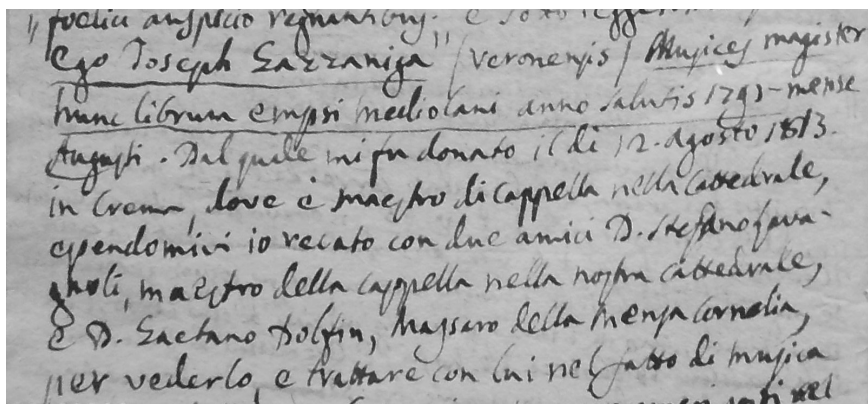 „ foelici auspicio regnantibus. e sotto
Ego Joseph Gazzaniga" / veronensis / Musices magister
hunc librum empsi Mediolani anno salutis 1791 - mense
Augusti. Dal quale mi fu donato il di 12. agosto 1813.
in Crema, dove è maestro di cappella nella Cattedrale,
essendomivi io recato con due amici D. Stefano Pava-
gnoli, maestro della cappella nella nostra cattedrale,
e D. Gaetano Dolfin, Massaro della Mensa Cornelia,
per vederlo, e trattare con lui nel fatto di musica
nel